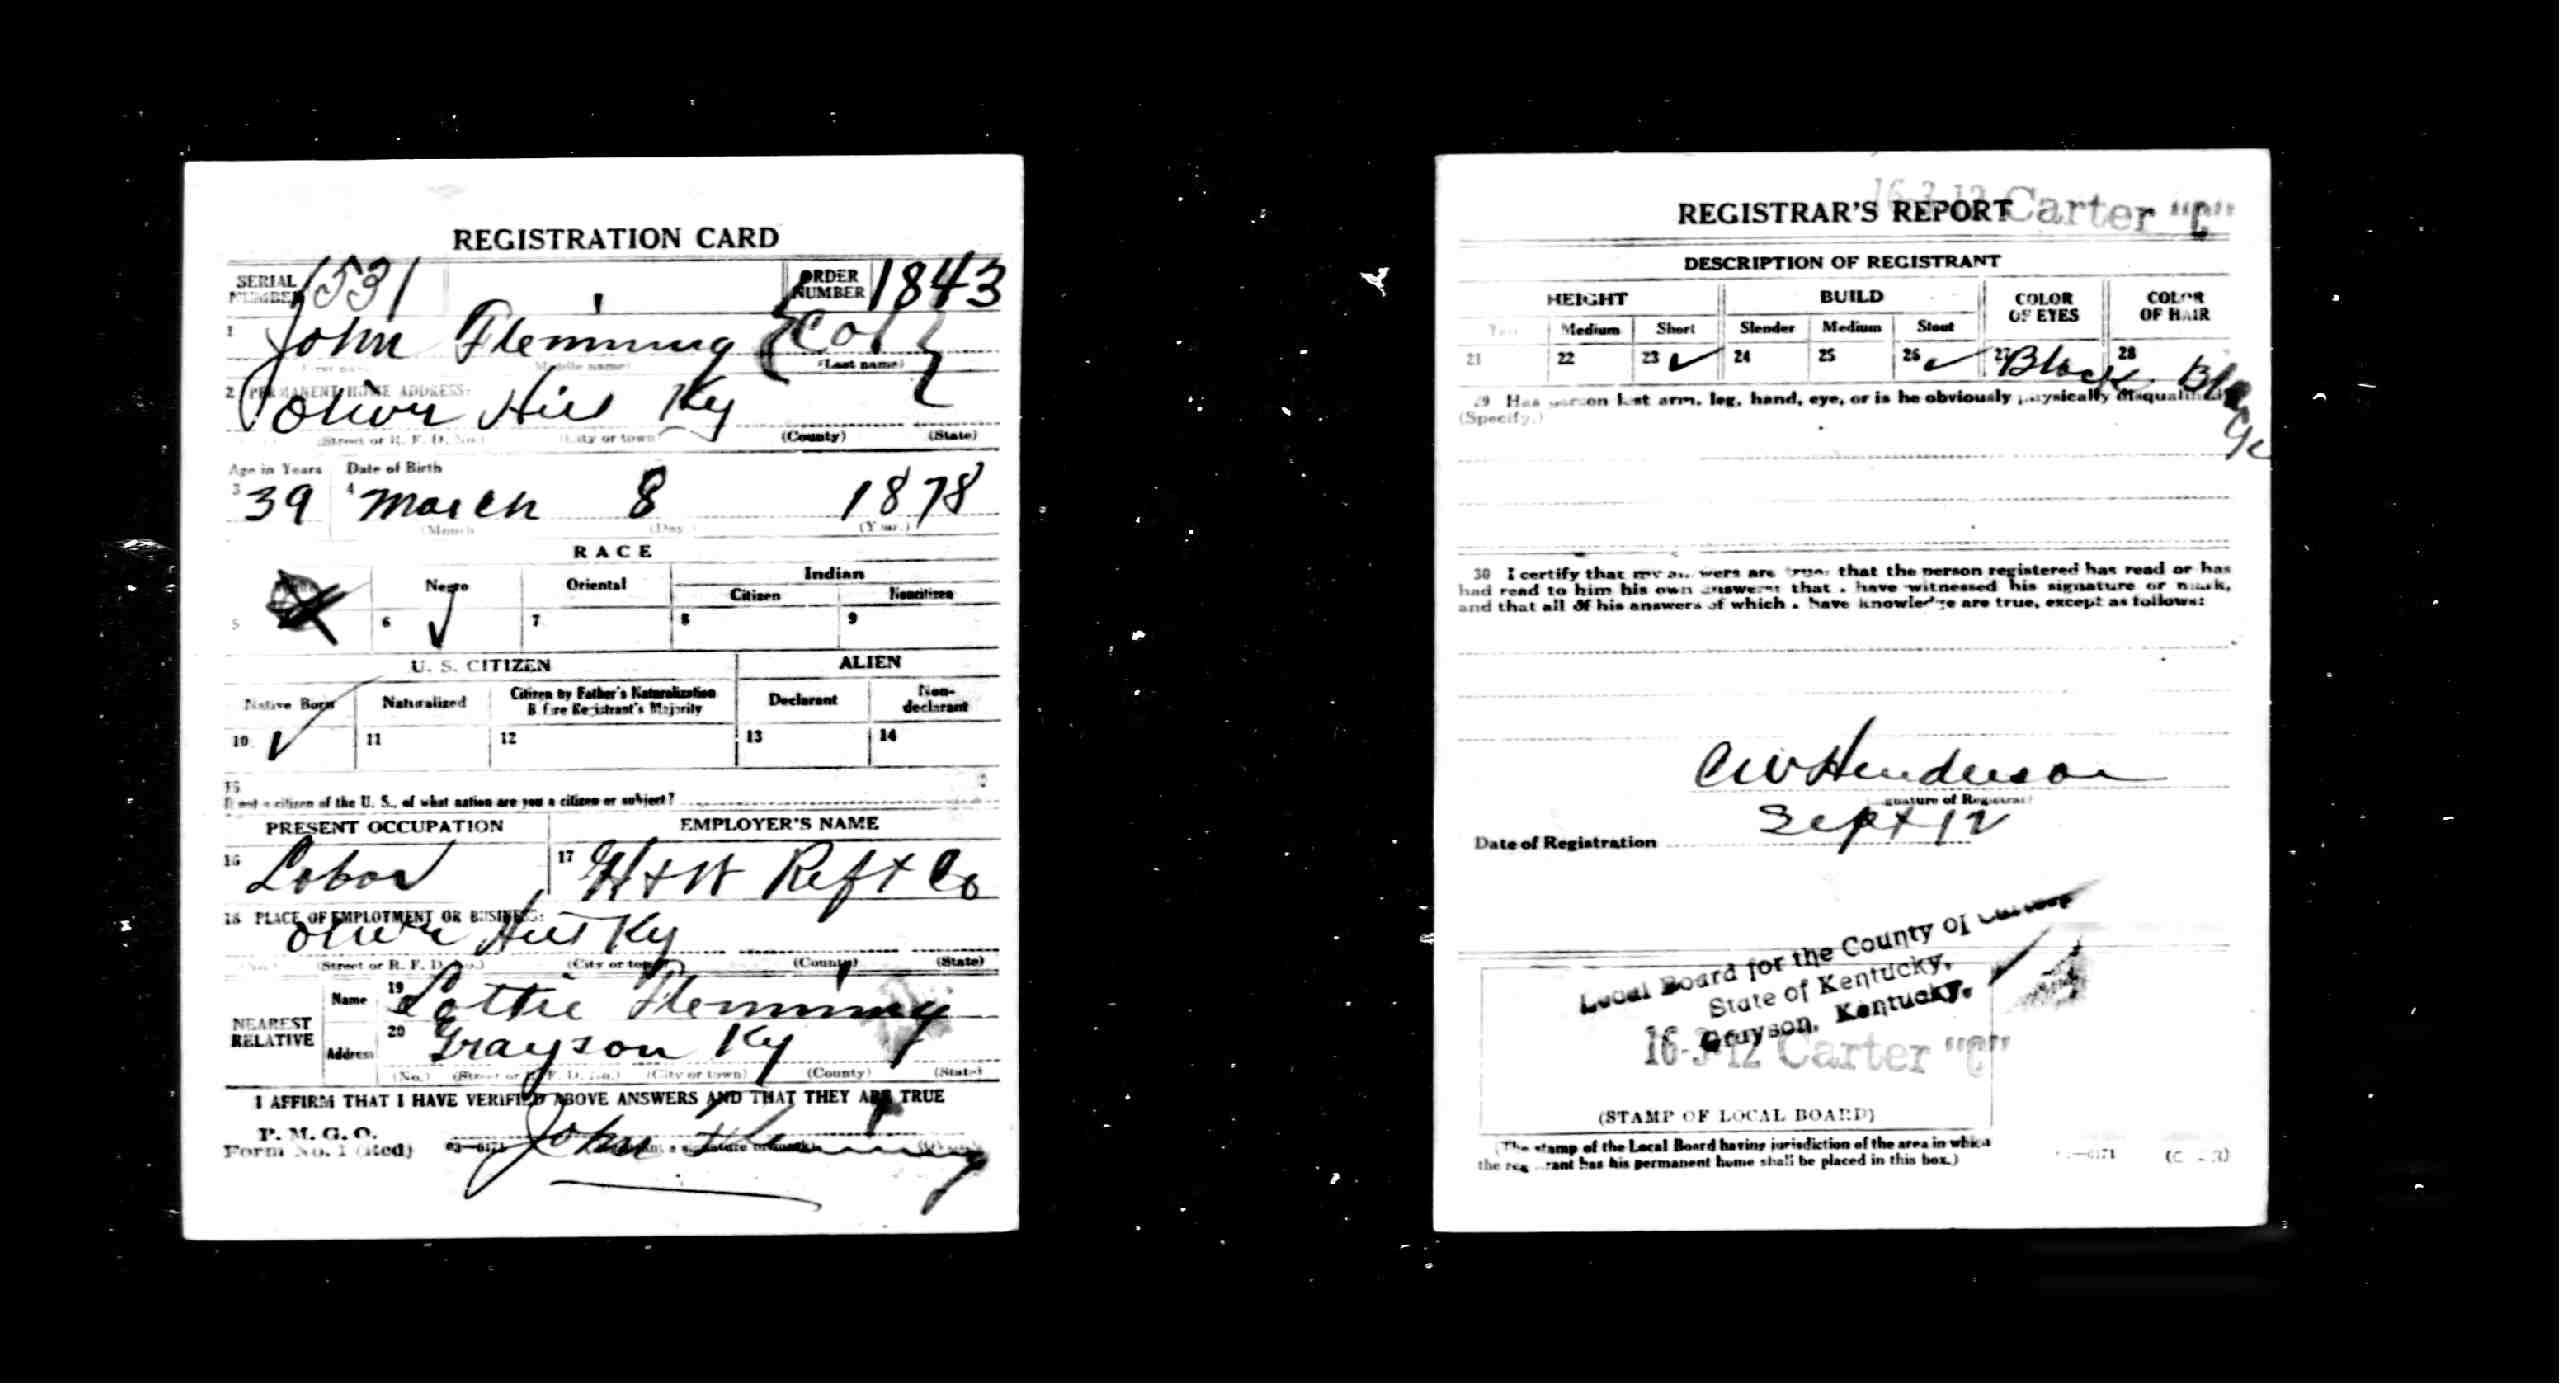 REGISTRATION CARD
SERIAL NUMBER 1531 ORDER NUMBER 1843
1 John Flemming (Col)
(Middle name) (Last name)
2 PERMANENT HOME ADDRESS:
Oliver Hill Ky
(Street or R. F. D. No.) (City or town) (County) (State)
Age in Years Date of Birth
3 39 4 March 8 1878
(Month) (Day) (Year.)
RACE
Negro Oriental Indian
Citizen Noncitizen
5 6 ✓ 7 8 9
U. S. CITIZEN ALIEN
Native Born Naturalized Citizen by Father's Naturalization Before Registrant's Majority Declarant Non-declarant
10 ✓ 11 12 13 14
15
If not a citizen of the U. S., of what nation are you a citizen or subject?
PRESENT OCCUPATION EMPLOYER'S NAME
16 Labor 17 H + W Reft Co
18 PLACE OF EMPLOYMENT OR BUSINESS:
Oliver Hill Ky
(No.) (Street or R. F. D. No.) (City or town) (County) (State)
NEAREST RELATIVE
Name 19 Lottie Flemming
Address 20 Grayson Ky
(No.) (Street or R. F. D. No.) (City or town) (County) (State)
I AFFIRM THAT I HAVE VERIFIED ABOVE ANSWERS AND THAT THEY ARE TRUE
P. M. G. O.
Form No. 1 (Red) 03—6171 John Flemming
REGISTRAR'S REPORT 16-3-12 Carter "C"
DESCRIPTION OF REGISTRANT
HEIGHT BUILD COLOR OF EYES COLOR OF HAIR
Tall Medium Short Slender Medium Stout
21 22 23 ✓ 24 25 26 ✓ 27 Black 28 Black
29 Has person lost arm, leg, hand, eye, or is he obviously physically disqualified?
(Specify.)
30 I certify that my answers are true; that the person registered has read or has
had read to him his own answers; that I have witnessed his signature or mark,
and that all of his answers of which I have knowledge are true, except as follows:
C W Henderson
(Signature of Registrar)
Date of Registration Sept 12
Local Board for the County of
State of Kentucky,
Grayson, Kentucky.
16-3-12 Carter "C"
(STAMP OF LOCAL BOARD)
(The stamp of the Local Board having jurisdiction of the area in which
the registrant has his permanent home shall be placed in this box.)